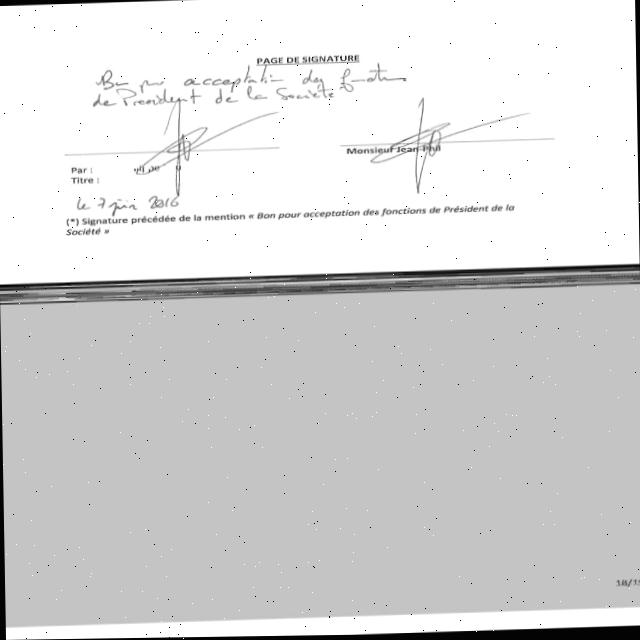 PAGE DE SIGNATURE
Bon pour acceptation des fonctions
de Président de la Société
Monsieur Jean-Phil
Par :
Titre :
le 7 juin 2016
(*) Signature précédée de la mention « Bon pour acceptation des fonctions de Président de la
Société »